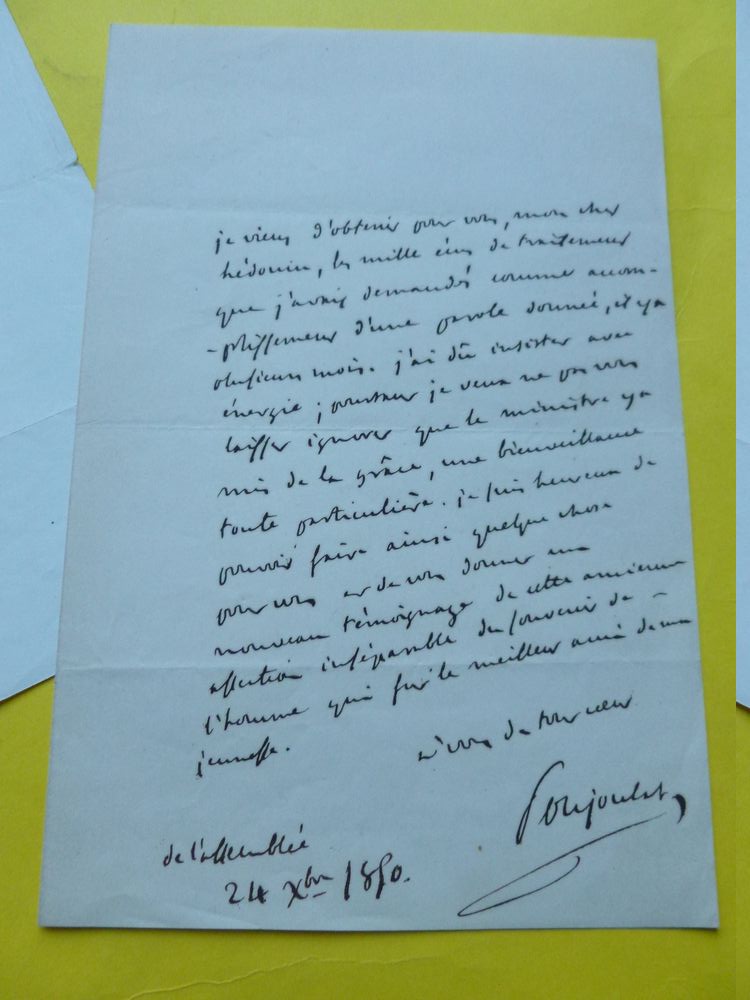 je viens d'obtenir pour vous, mon cher
hédouin, les mille écus de traitement
que j'avais demandés comme accom-
-plissement d'une parole donnée, il y a
plusieurs mois. j'ai dû insister avec
énergie ; pourtant je veux ne pas vous
laisser ignorer que le ministre y a
mis de la grâce, une bienveillance
toute particulière. je suis heureux de
pouvoir faire ainsi quelque chose
pour vous et de vous donner un
nouveau témoignage de cette ancienne
affection inséparable du souvenir de -
l'homme qui fut le meilleur ami de ma
jeunesse.
à vous de tout cœur
Poujoulat
de l'assemblée
24 Xbre 1850.